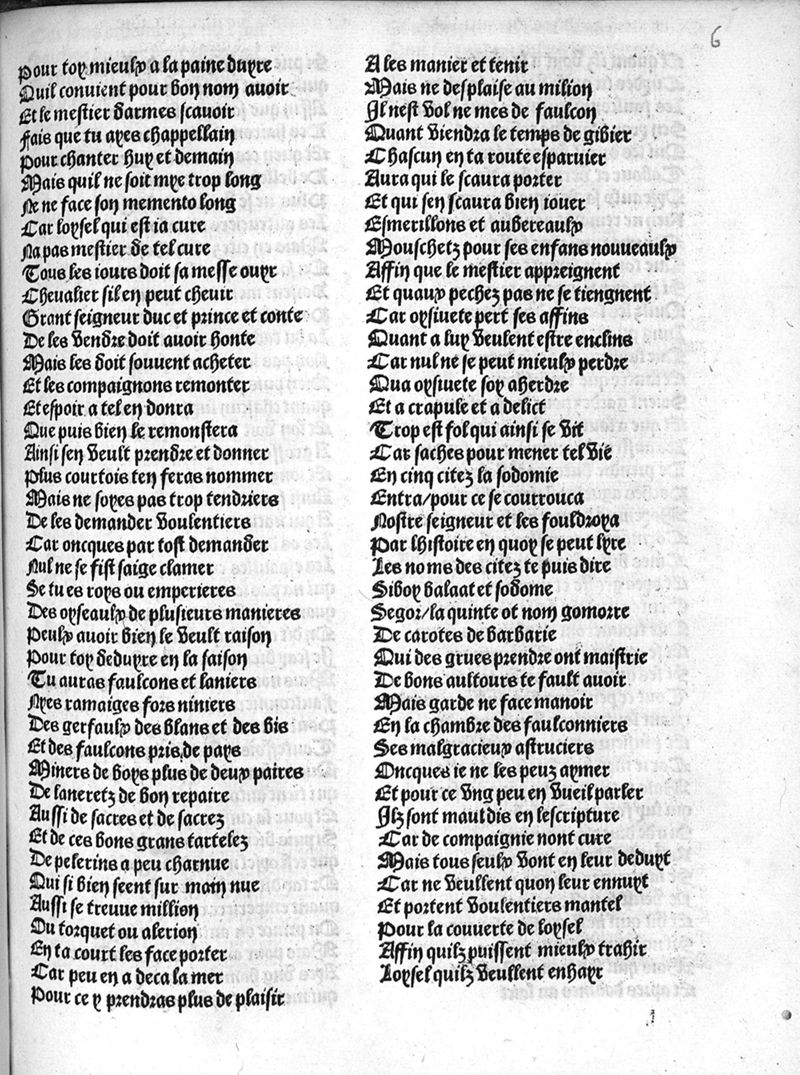 6
Pour toy mieulx a la paine duyre
Quil convient pour bon nom avoir
Et le mestier darmes scauoir
Fais que tu ayes chappellain
Pour chanter huy et demain
Mais quil ne soit mye trop long
Ne ne face son memento long
Car loysel qui est ia cure
Na pas mestier de tel cure
Tous les iours doit sa messe ouyr
Chevalier sil en peut chevir
Grant seigneur duc et prince et conte
De les vendre doit avoir honte
Mais les doit souvent acheter
Et les compaignons remonter
Et espoir a tel en donra
Que puis bien le remonstera
Ainsi sen veult prendre et donner
Plus courtois ten feras nommer
Mais ne soyes pas trop tendriers
De les demander voulentiers
Car oncques par tost demander
Nul ne se fist saige clamer
Se tu es roys ou emperieres
Des oyseaulx de plusieurs manieres
Peulx avoir bien le veult raison
Pour toy deduyre en la saison
Tu auras faulcons et laniers
Nyes ramaiges fors niniers
Des gerfaulx des blans et des bis
Et des faulcons pris de pays
Miners de boys plus de deux paires
De laneretz de bon repaire
Aussi de sacres et de sacrez
Et de ces bons grans tartelez
De pelerins a peu charnue
Qui si bien seent sur main nue
Aussi se treuue million
Du torquet ou alerion
En ta court les face porter
Car peu en a deca la mer
Pour ce y prendras plus de plaisir
A les manier et tenir
Mais ne desplaise au milion
Il nest vol ne mes de faulcon
Quant viendra le temps de gibier
Chascun en ta route esparuier
Aura qui le scaura porter
Et qui sen scaura bien iouer
Esmerillons et aubereaulx
Mouschetz pour ses enfans nouueaulx
Affin que le mestier appreignent
Et quaux pechez pas ne se tiengnent
Car oysiuete pert ses affins
Quant a luy veulent estre enclins
Car nul ne se peut mieulx perdre
Qua oysiuete soy aherdre
Et a crapule et a delict
Trop est fol qui ainsi se vit
Car saches pour mener tel vie
En cinq citez la sodomie
Entra/pour ce se courrouca
Nostre seigneur et les fouldroya
Par lhistoire en quoy se peut lyre
Les noms des citez te puis dire
Siboy balaat et sodome
Segor/la quinte ot nom gomorre
De carotes de barbarie
Qui des grues prendre ont maistrie
De bons aultours te fault avoir
Mais garde ne face manoir
En la chambre des faulconniers
Ses malgracieux astruciers
Oncques ie ne les peuz aymer
Et pour ce vng peu en vueil parler
Ilz sont mauldis en lescripture
Car de compaignie nont cure
Mais tous seulx vont en leur deduyt
Car ne veullent quon leur ennuyt
Et portent voulentiers mantel
Pour la couuerte de loysel
Affin quilz puissent mieulx trahir
Loysel quilz veullent enhayr